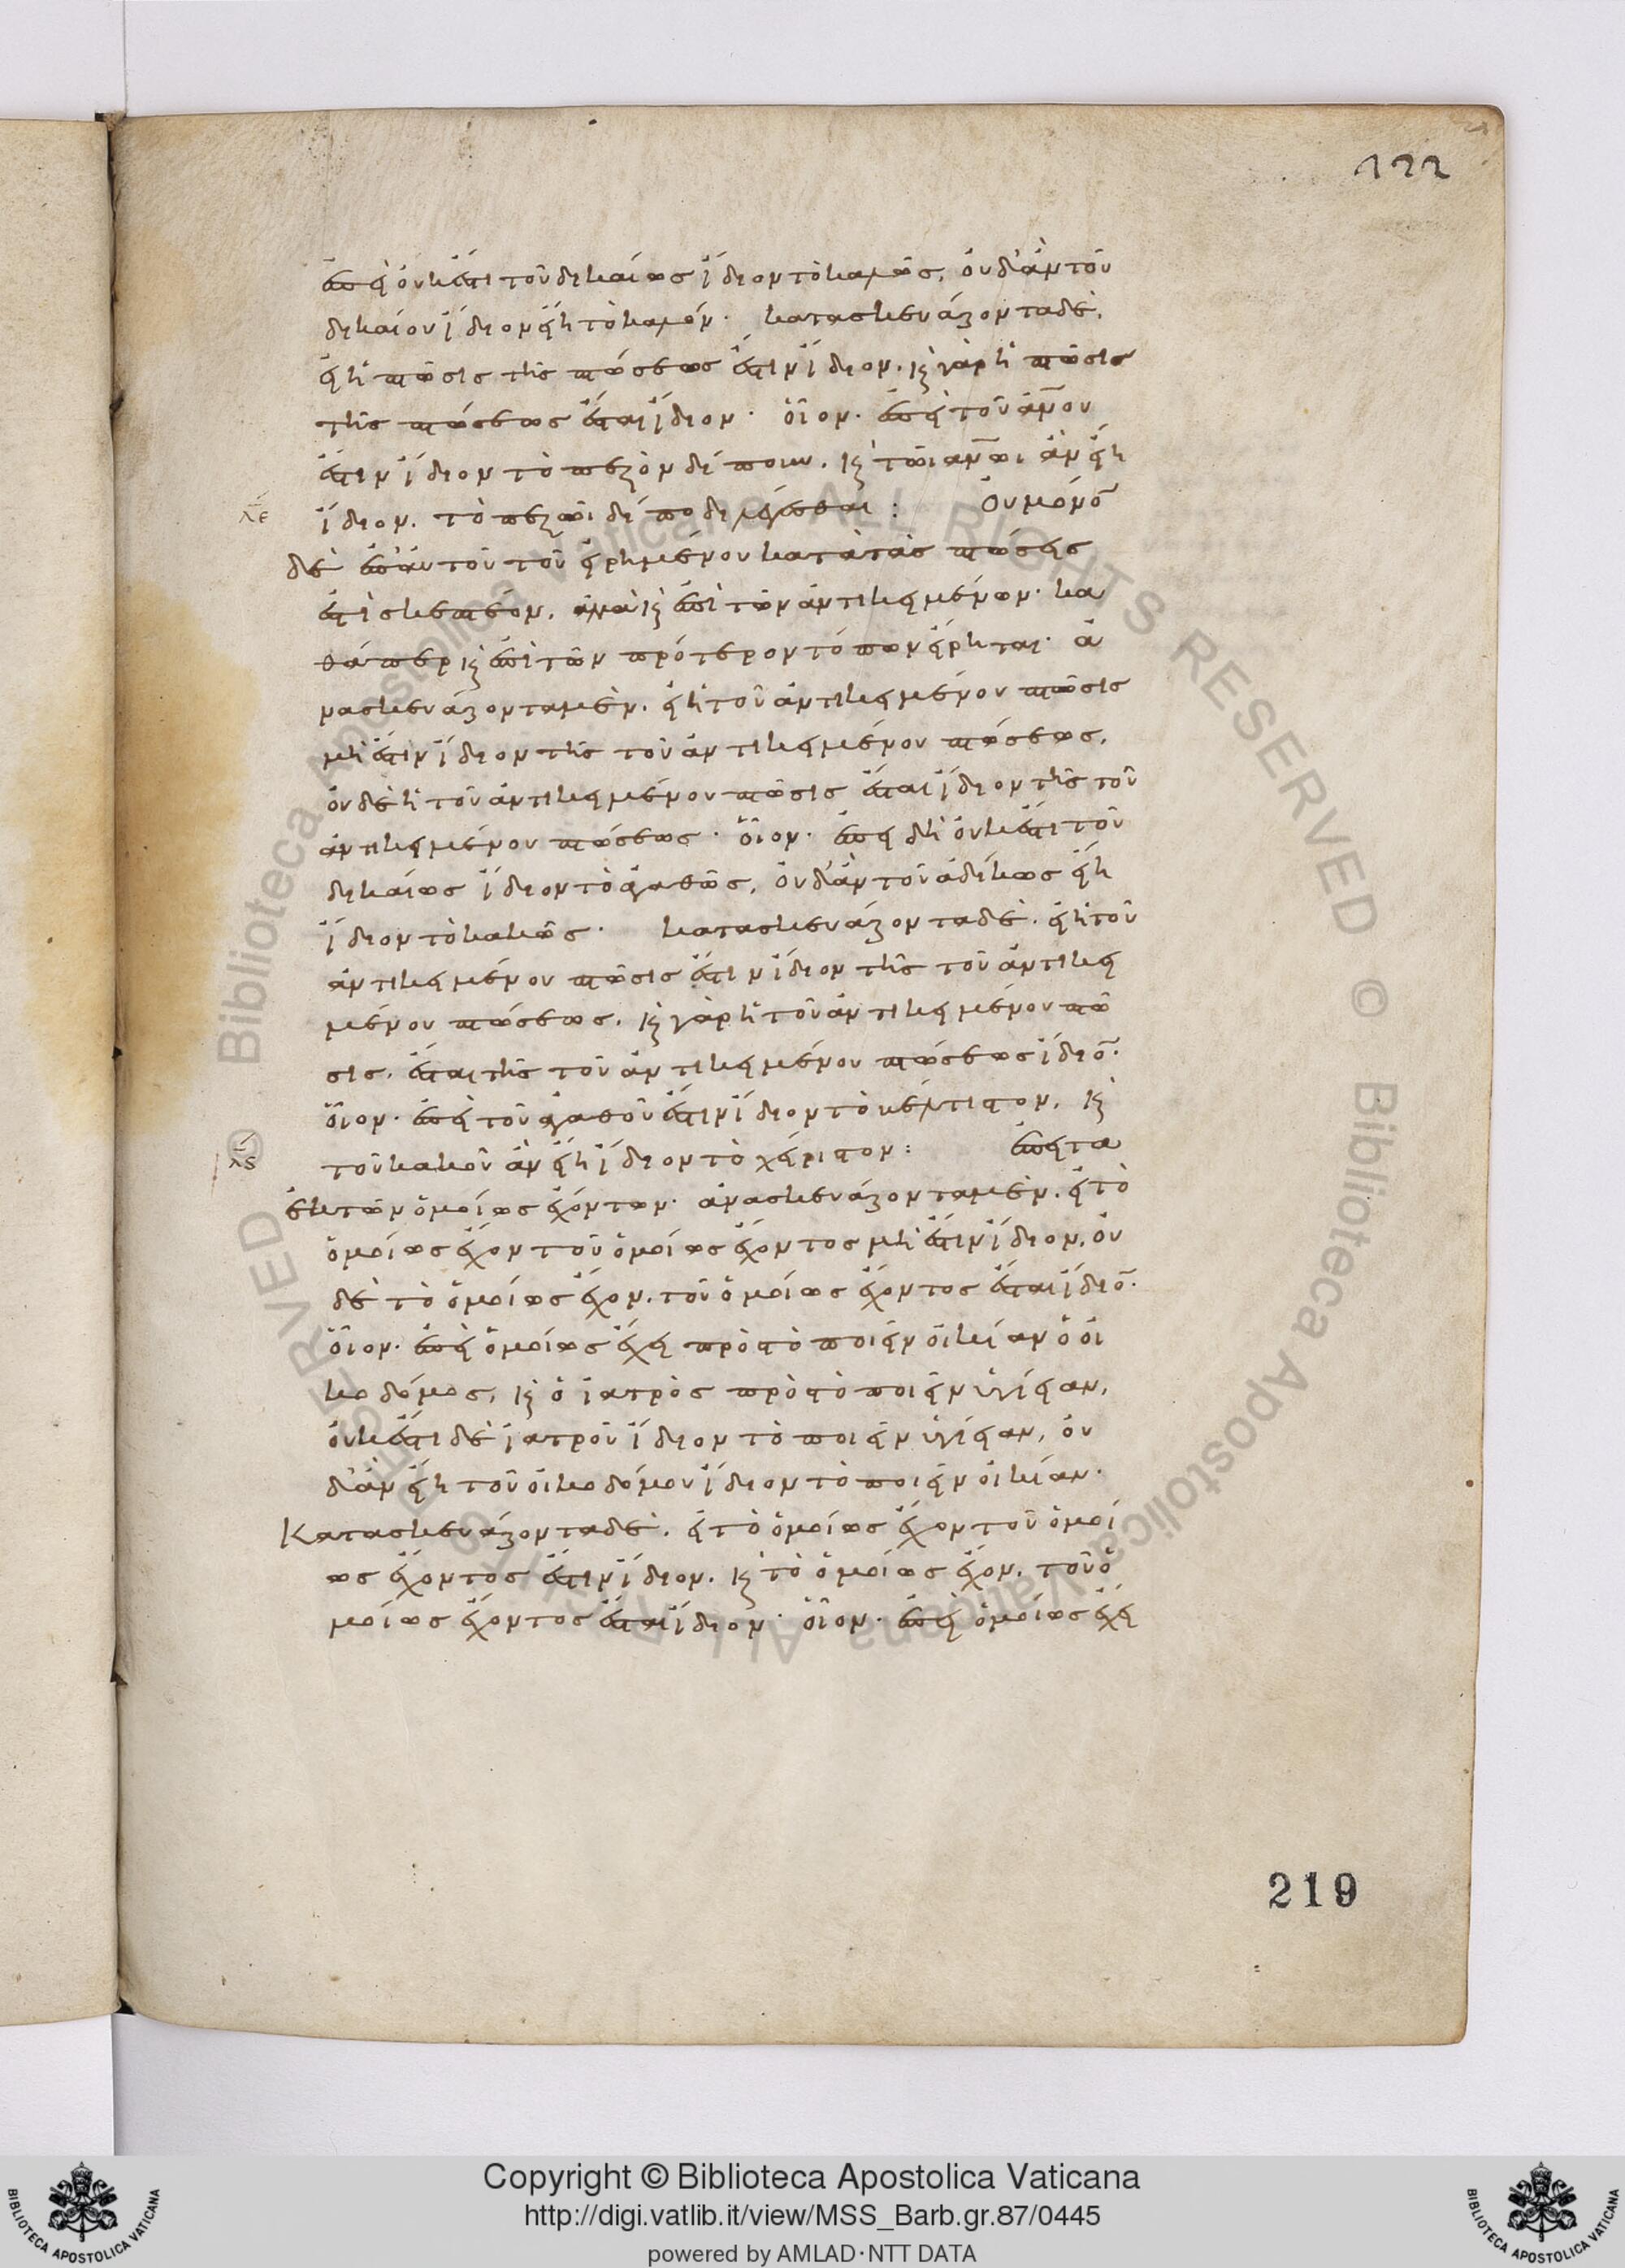 122
ἐπεὶ οὐκ ἔστι τοῦ δικαίως ἴδιον τὸ καλῶς, οὐδ' ἂν τοῦ
δικαίου ἴδιον εἴη τὸ καλόν. κατασκευάζοντα δὲ,
εἰ ἡ πτῶσις τῆς πτώσεως ἐστὶν ἴδιον. καὶ γὰρ ἡ πτῶσις
τῆς πτώσεως ἔσται ἴδιον. οἷον. ἐπεὶ τοῦ ἀν̅ου
ἐστὶν ἴδιον τὸ πεζὸν δίπουν. καὶ τῶι ἀν̅ωι ἂν εἴη
λε
ἴδιον. τὸ πεζῶι δίποδι λέγεσθαι: Οὐ μόνο̅
δὲ ἐπ' αὐτοῦ τοῦ εἰρημένου κατὰ τὰς πτώσεις
ἐστὶ σκεπτέον. ἀλλὰ καὶ ἐπὶ τῶν ἀντικειμένων. κα
θάπερ καὶ ἐπὶ τῶν πρότερον τόπων εἴρηται. ἀ
νασκευάζοντα μὲν. εἰ ἡ τοῦ ἀντικειμένου πτῶσις
μή ἐστιν ἴδιον τῆς τοῦ ἀντικειμένου πτώσεως,
οὐδὲ ἡ τοῦ ἀντικειμένου πτῶσις ἔσται ἴδιον τῆς τοῦ
ἀντικειμένου πτώσεως. οἷον. ἐπεὶ δὴ οὐκ ἔστι τοῦ
δικαίως ἴδιον τὸ ἀγαθῶς, οὐδ' ἂν τοῦ ἀδίκως εἴη
ἴδιον τὸ κακῶς. κατασκευάζοντα δὲ. εἰ ἡ τοῦ
ἀντικειμένου πτῶσις ἐστὶν ἴδιον τῆς τοῦ ἀντικει
μένου πτώσεως. καὶ γὰρ ἡ τοῦ ἀντικειμένου πτῶ
σις. ἔσται τῆς τοῦ ἀντικειμένου πτώσεως ἴδιο̅.
οἷον. ἐπεὶ τοῦ ἀγαθοῦ ἐστὶν ἴδιον τὸ βέλτιστον, καὶ
λς
τοῦ κακοῦ ἂν εἴη ἴδιον τὸ χείριστον: ἔπειτα
ἐκ τῶν ὁμοίως ἐχόντων. ἀνασκευάζοντα μὲν. εἰ τὸ
ὁμοίως ἔχον τοῦ ὁμοίως ἔχοντος μή ἐστιν ἴδιον, οὐ
δὲ τὸ ὁμοίως ἔχον. τοῦ ὁμοίως ἔχοντος ἔσται ἴδιο̅.
οἷον. ἐπεὶ ὁμοίως ἔχει πρὸς τὸ ποιεῖν οἰκίαν ὁ οἰ
κοδόμος, καὶ ὁ ἰατρὸς πρὸς τὸ ποιεῖν ὑγίειαν,
οὐκ ἔστι δὲ ἰατροῦ ἴδιον τὸ ποιεῖν ὑγίειαν, οὐ
δ' ἂν εἴη τοῦ οἰκοδόμου ἴδιον τὸ ποιεῖν οἰκίαν.
Κατασκευάζοντα δὲ. εἰ τὸ ὁμοίως ἔχον τοῦ ὁμοί
ως ἔχοντος ἐστὶν ἴδιον. καὶ τὸ ὁμοίως ἔχον. τοῦ ὁ
μοίως ἔχοντος ἔσται ἴδιον. οἷον. ἐπεὶ ὁμοίως ἔχει
219
Biblioteca Apostolica Vaticana ALL RIGHTS RESERVED ©
Biblioteca Apostolica Vaticana ALL RIGHTS RESERVED ©
Copyright © Biblioteca Apostolica Vaticana
http://digi.vatlib.it/view/MSS_Barb.gr.87/0445
powered by AMLAD·NTT DATA
BIBLIOTECA APOSTOLICA VATICANA
BIBLIOTECA APOSTOLICA VATICANA